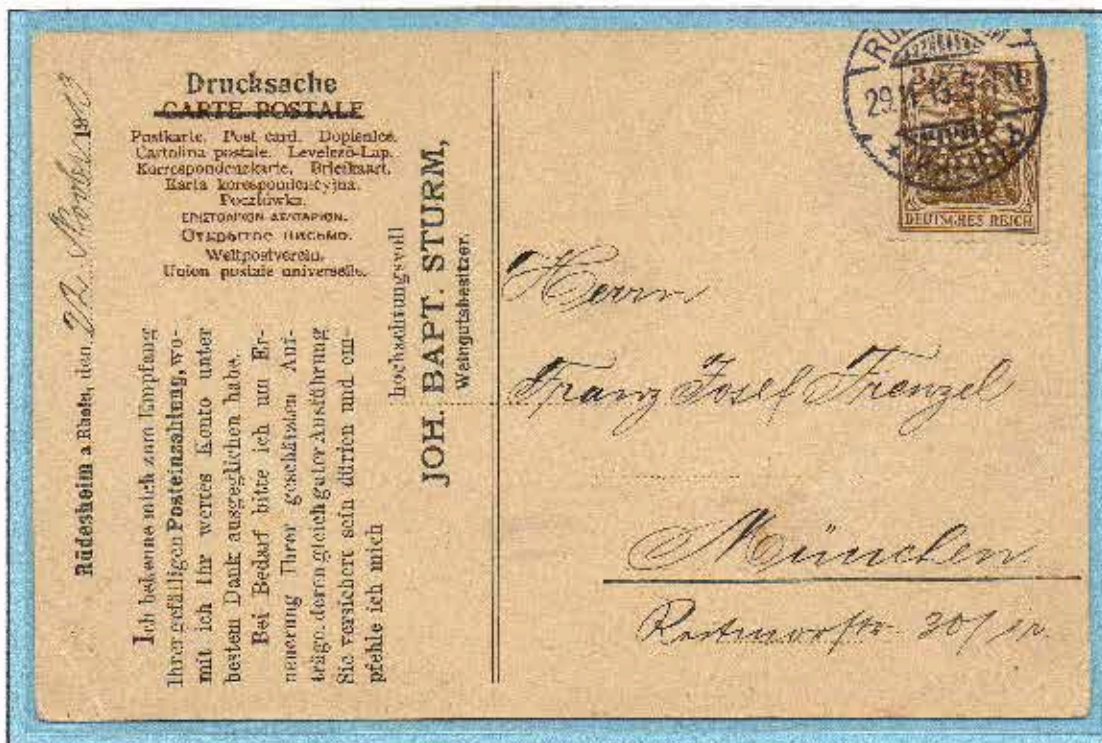 Drucksache
CARTE POSTALE
Postkarte. Post card. Dopisnice.
Cartolina postale. Levelező-Lap.
Korrespondenzkarte. Briefkaart.
Karta korespondencyjna.
Pocztówka.
ΕΠΙΣΤΟΛΙΚΟΝ ΔΕΛΤΑΡΙΟΝ.
Открытое письмо.
Weltpostverein.
Union postale universelle.
Rüdesheim a Rhein, den 22. 1913
Ich bekenne mich zum Empfang
Ihrer gefälligen Posteinzahlung, wo-
mit ich Ihr wertes Konto unter
bestem Dank ausgeglichen habe.
Bei Bedarf bitte ich um Er-
neuerung Ihrer geschätzten Auf-
träge, deren gleich guter Ausführung
Sie versichert sein dürfen und em-
pfehle ich mich
hochachtungsvoll
JOH. BAPT. STURM,
Weingutsbesitzer.
29.11.13.5
DEUTSCHES REICH
Herrn
Franz Josef Frenzel
München
30/